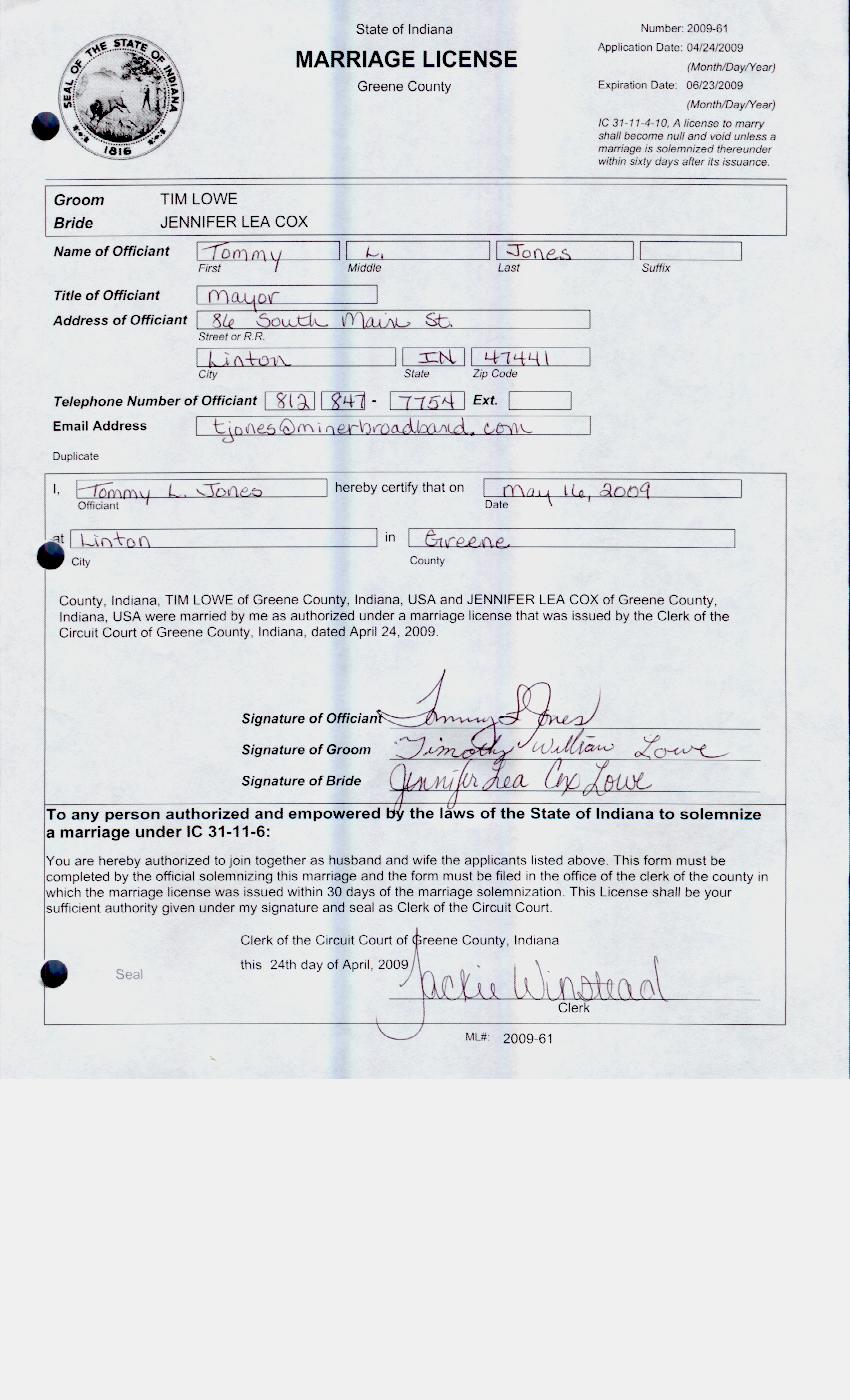 State of Indiana
MARRIAGE LICENSE
Greene County
SEAL OF THE STATE OF INDIANA
1816
Number: 2009-61
Application Date: 04/24/2009
(Month/Day/Year)
Expiration Date: 06/23/2009
(Month/Day/Year)
IC 31-11-4-10, A license to marry
shall become null and void unless a
marriage is solemnized thereunder
within sixty days after its issuance.
Groom TIM LOWE
Bride JENNIFER LEA COX
Name of Officiant Tommy L. Jones
First Middle Last Suffix
Title of Officiant Mayor
Address of Officiant 86 South Main St.
Street or R.R.
Linton IN 47441
City State Zip Code
Telephone Number of Officiant 812 847 - 7754 Ext.
Email Address tjones@minerbroadband.com
Duplicate
I, Tommy L. Jones hereby certify that on May 16, 2009
Officiant Date
at Linton in Greene
City County
County, Indiana, TIM LOWE of Greene County, Indiana, USA and JENNIFER LEA COX of Greene County,
Indiana, USA were married by me as authorized under a marriage license that was issued by the Clerk of the
Circuit Court of Greene County, Indiana, dated April 24, 2009.
Signature of Officiant Tommy L Jones
Signature of Groom Timothy William Lowe
Signature of Bride Jennifer Lea Cox Lowe
To any person authorized and empowered by the laws of the State of Indiana to solemnize
a marriage under IC 31-11-6:
You are hereby authorized to join together as husband and wife the applicants listed above. This form must be
completed by the official solemnizing this marriage and the form must be filed in the office of the clerk of the county in
which the marriage license was issued within 30 days of the marriage solemnization. This License shall be your
sufficient authority given under my signature and seal as Clerk of the Circuit Court.
Clerk of the Circuit Court of Greene County, Indiana
this 24th day of April, 2009
Seal
Jackie Winstead
Clerk
ML#: 2009-61